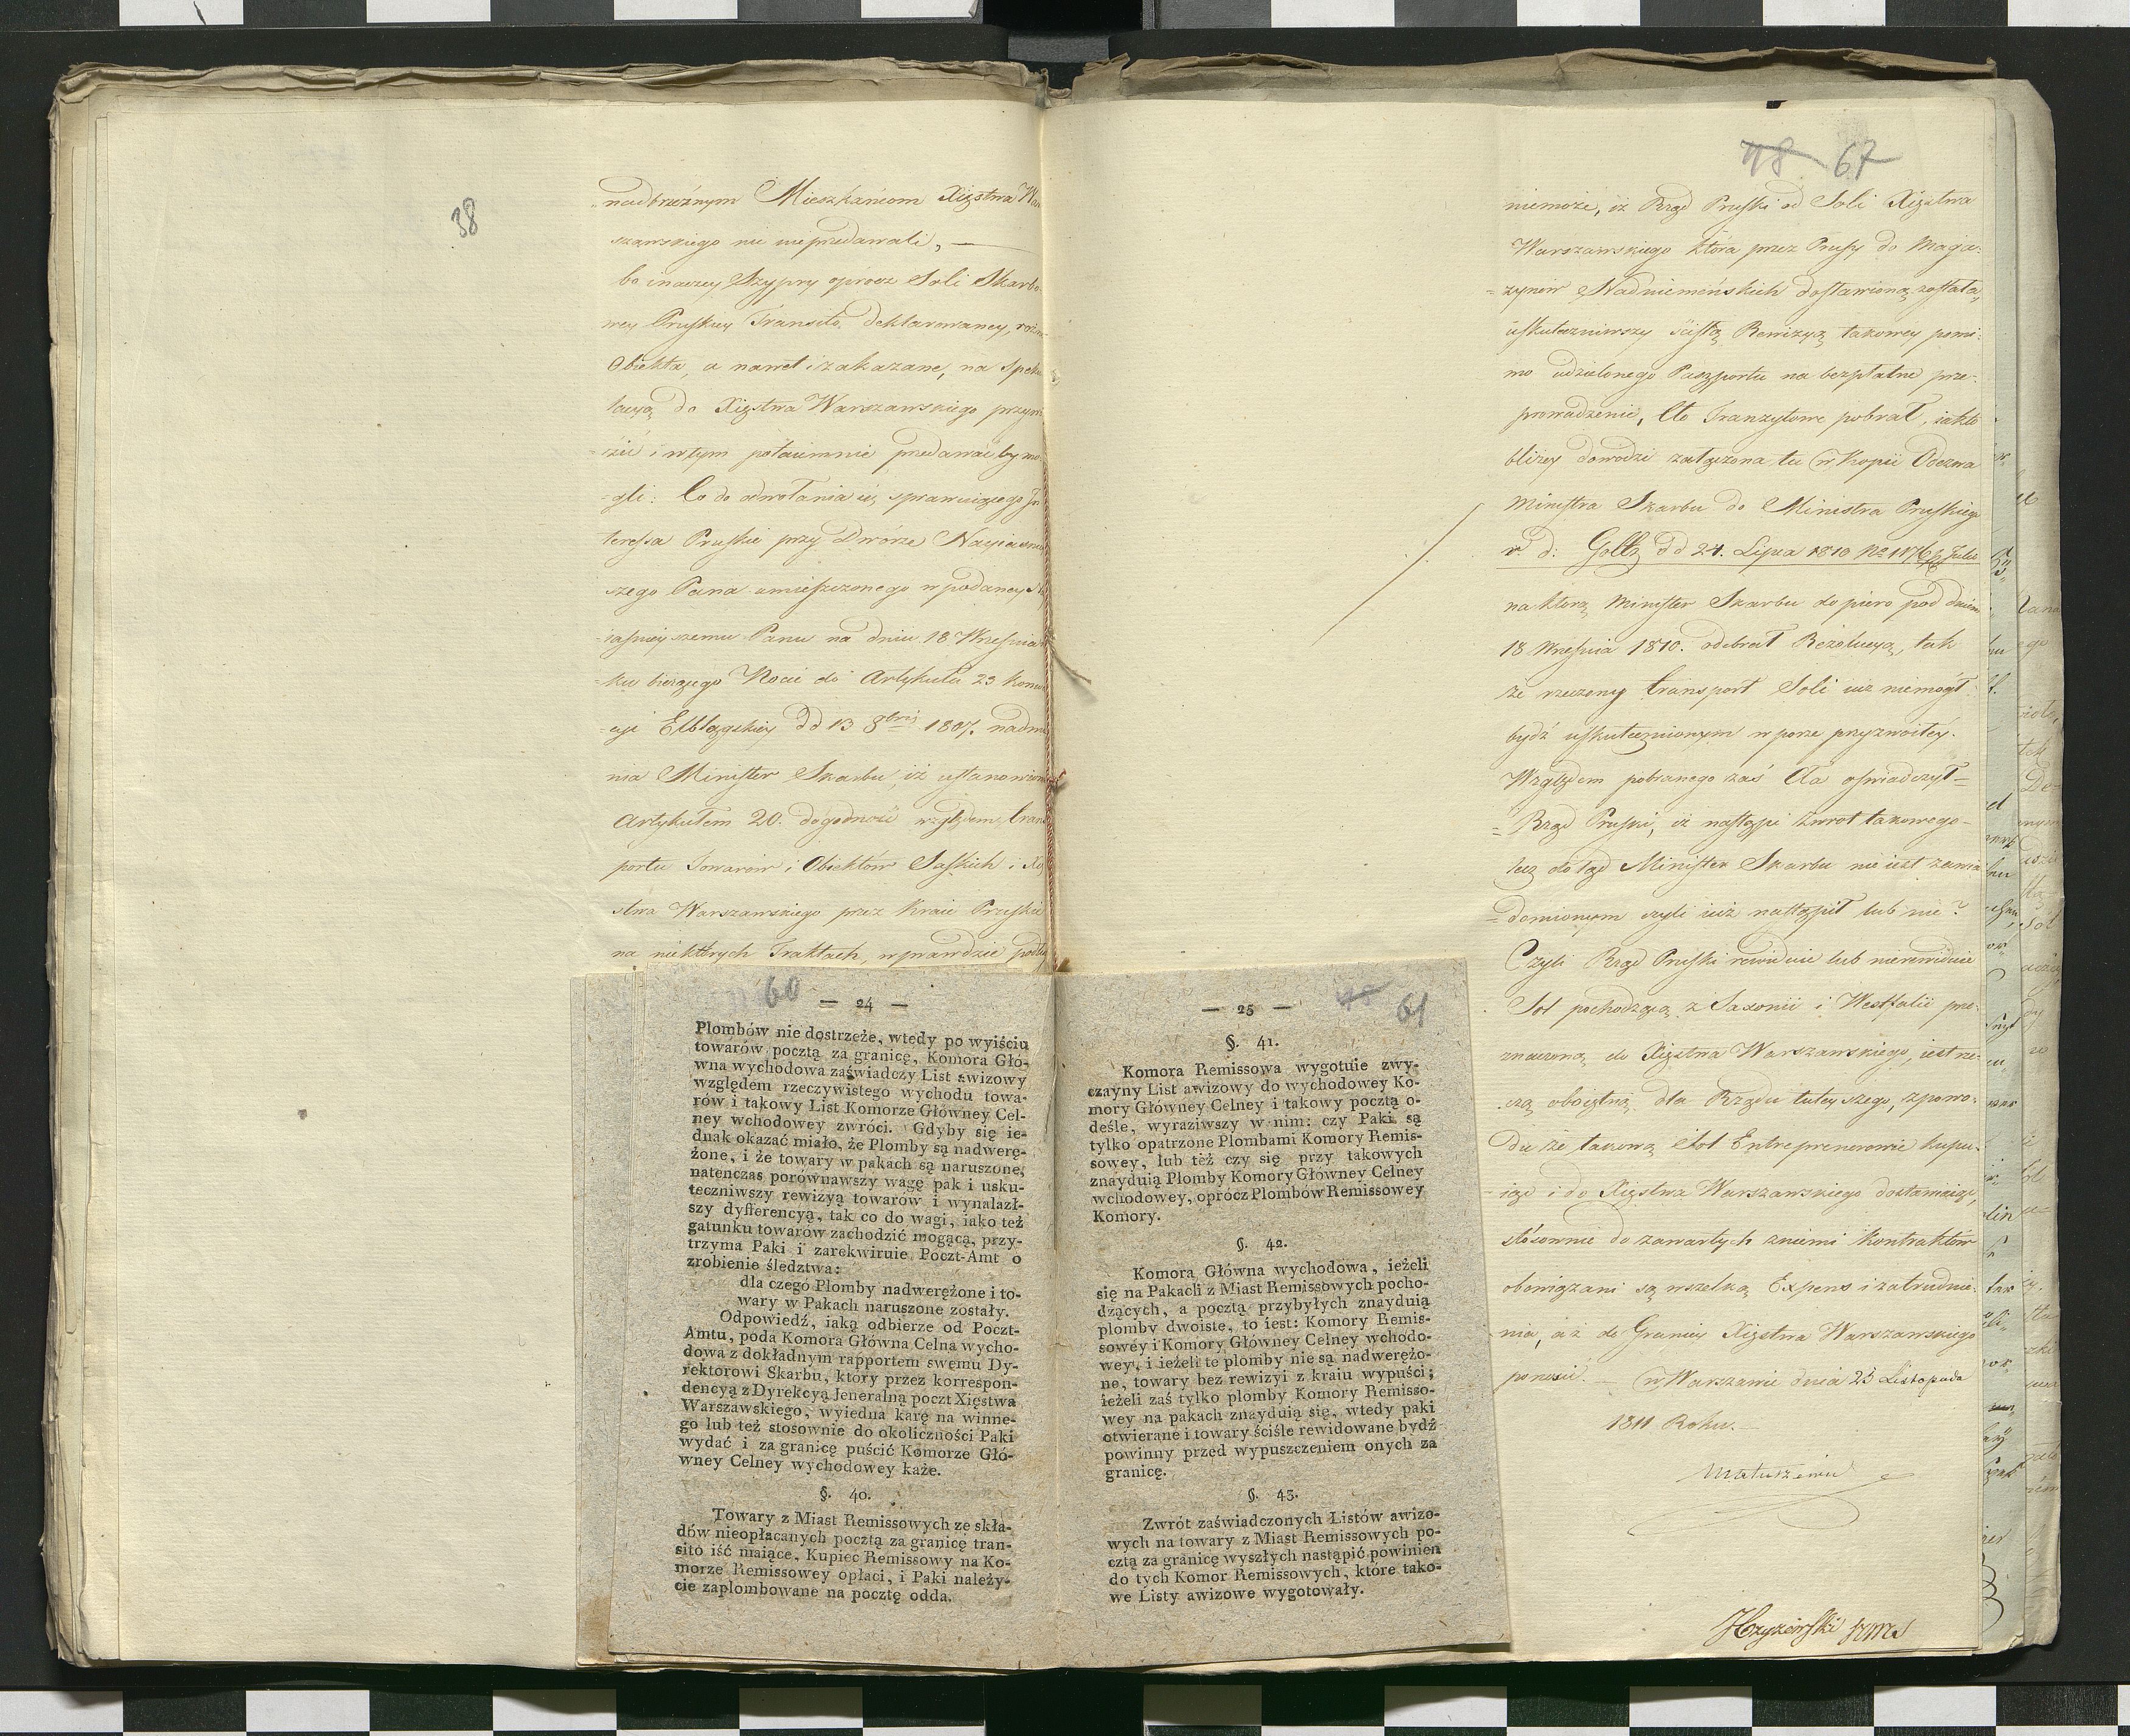 38
nadbrzeżnym Mieszkańcom Xięstwa War
szawskiego nic nieprzedawali, —
bo inaczey Szypry oprocz Soli Skarbo-
wey Pruskiey Transito deklarowaney, rożne
Obiekta, a nawet i zakazane, na speku
lacyą do Xięstwa Warszawskiego przywo
zić i w tym potaiemnie przedawać by mo-
gli. Co do odwołania się sprawuiącego In
teressa Pruskie przy Dworze Nayiaśniey
szego Pana umieszczonego w podaney
iaśnieyszemu Panu na dniu 18 Września
ku bieżącego Nocie do Artykułu 23 Konwen
cyi Elblągskiey dd 13 8bris 1807. nadmie
nia Minister Skarbu, iż ustanowiona
Artykułem 20. dogodność względem trans
portu Towarów i Obiektów Saskich i Xię
stwa Warszawskiego przez Kraie Pruskie
na niektórych Traktach, wprawdzie podług
60
— 24 —
Plombów nie dostrzeże, wtedy po wyiściu
towarów pocztą za granicę, Komora Głó-
wna wychodowa zaświadczy List awizowy
względem rzeczywistego wychodu towa-
rów i takowy List Komorze Główney Cel-
ney wchodowey zwróci. Gdyby się ie-
dnak okazać miało, że Plomby są nadwerę-
żone, i że towary w pakach są naruszone,
natenczas porównawszy wagę pak i usku-
teczniwszy rewizyą towarów i wynalazł-
szy dyfferencyą, tak co do wagi, iako też
gatunku towarów zachodzić mogącą, przy-
trzyma Paki i zarekwiruie Poczt-Amt o
zrobienie śledztwa:
dla czego Plomby nadwerężone i to-
wary w Pakach naruszone zostały.
Odpowiedź, iaką odbierze od Poczt-
Amtu, poda Komora Główna Celna wycho-
dowa z dokładnym rapportem swemu Dy-
rektorowi Skarbu, który przez korrespon-
dencyą z Dyrekcyą Jeneralną poczt Xięstwa
Warszawskiego, wyiedna karę na winne-
go lub też stosownie do okoliczności Paki
wydać i za granicę puścić Komorze Głó-
wney Celney wychodowey każe.
§. 40.
Towary z Miast Remissowych ze skła-
dów nieopłacanych pocztą za granicę tran-
sito iść maiące, Kupiec Remissowy na Ko-
morze Remissowey opłaci, i Paki należy-
cie zaplombowane na pocztę odda.
61
— 25 —
§. 41.
Komora Remissowa wygotuie zwy-
czayny List awizowy do wychodowey Ko-
mory Główney Celney i takowy pocztą o-
deśle, wyraziwszy w nim: czy Paki są
tylko opatrzone Plombami Komory Remis-
sowey, lub też czy się przy takowych
znayduią Plomby Komory Główney Celney
wchodowey, oprócz Plombów Remissowey
Komory.
§. 42.
Komora Główna wychodowa, ieżeli
się na Pakach z Miast Remissowych pocho-
dzących, a pocztą przybyłych znayduią
plomby dwoiste, to iest: Komory Remis-
sowey i Komory Główney Celney wchodo-
wey, i ieżeli te plomby nie są nadwerężo-
ne, towary bez rewizyi z kraiu wypuści;
ieżeli zaś tylko plomby Komory Remisso-
wey na pakach znayduią się, wtedy paki
otwierane i towary ściśle rewidowane bydź
powinny przed wypuszczeniem onych za
granicę.
§. 43.
Zwrót zaświadczonych Listów awizo-
wych na towary z Miast Remissowych po-
cztą za granicę wyszłych nastąpić powinien
do tych Komor Remissowych, które tako-
we Listy awizowe wygotowały.
48 67
niemoże, iż Rząd Pruski od Soli Xięstwa
Warszawskiego która przez Prusy do Maga-
zynów Nadniemeńskich dostawioną została,
uskuteczniwszy ścisłą Rewizyą takowey pomi-
mo udzielonego Paszportu na bezpłatne prze-
prowadzenie, Cło Tranzytowe pobrał, iak to
bliżey dowodzi załączona tu w Kopii Odezwa
Ministra Skarbu do Ministra Pruskiego
v d: Goltz dd 24. Lipca 1810
na którą Minister Skarbu dopiero pod dniem
18 Września 1810. odebrał Rezolucyą, tak
że rzeczony transport Soli iuż niemógł
bydź uskutecznionym w porze przyzwoitey.
Względem pobranego zaś Cła oświadczył
Rząd Pruski, iż nastąpi zwrot takowego
lecz dotąd Minister Skarbu nie iest zawia
domionym czyli iuż nastąpił lub nie?
Czyli Rząd Pruski rewiduie lub nierewiduie
Sól pochodzącą z Saxonii i Westfalii prze-
znaczoną do Xięstwa Warszawskiego, iest rze-
czą oboiętną dla Rządu tuteyszego, z powo-
du że takową Sól Entreprenerowie kupu-
iąc i do Xięstwa Warszawskiego dostawiaiąc,
stósownie do zawartych z niemi Kontraktów
obowiązani są wszelką Expens i zatrudnie-
nia, aż do Granicy Xięstwa Warszawskiego
ponosić. — w Warszawie dnia 25 Listopada
1811 Roku. —
Matuszewic